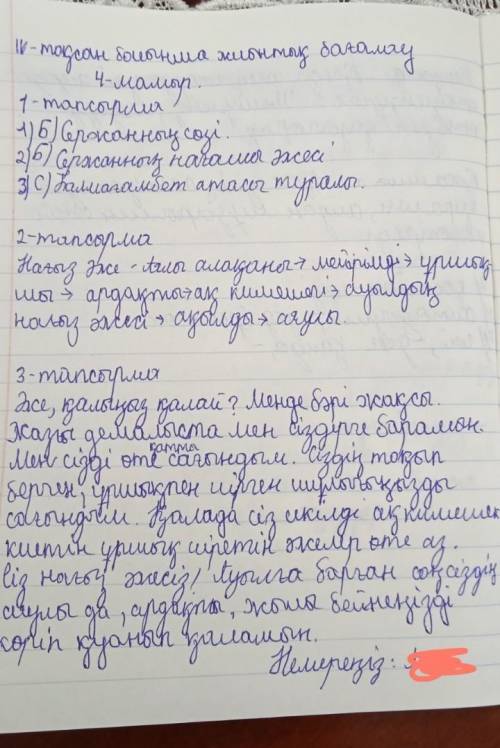 IV-тоқсан бойынша жиынтық бағалау
4-мамыр.
1-тапсырма
1) Б) Сержанның сөзі.
2) Б) Сержанның нағашы әжесі
3) С) Балмағамбет атасы туралы.
2-тапсырма
Нағыз әже - Аялы алақаны → мейірімді → ұршық-
шы → ардақты → ақ кимешегі → ауылдың
нағыз әжесі → ақылды → аяулы.
3-тапсырма
Әже, қалыңыз қалай? Менде бәрі жақсы.
Жазғы демалыста мен сіздерге барамын.
Мен сізді өте қатты сағындым. Сіздің тоқып
берген, ұршықпен иірген шұлығыңызды
сағындым. Қалада сіз секілді ақ кимешек
киетін ұршық иіретін әжелер өте аз.
Сіз нағыз әжесіз! Ауылға барған соң сіздің
аяулы да, ардақты, жылы бейнеңізді
көріп қуанып қаламын.
Немереңіз: